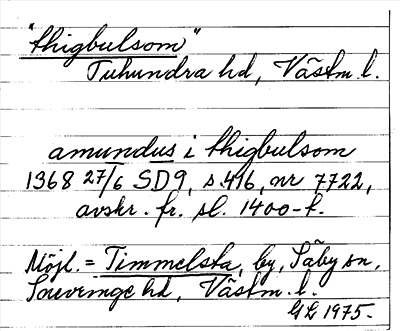 "thigbulsom"
Tuhundra hd, Västm. l.
amundus i thigbulsom
1368 27/6 SD9, s. 416, nr 7722,
avskr. fr. sl. 1400-t.
Möjl. = Timmelsta, by, Säby sn,
Snevringe hd, Västm. l.
GL 1975.